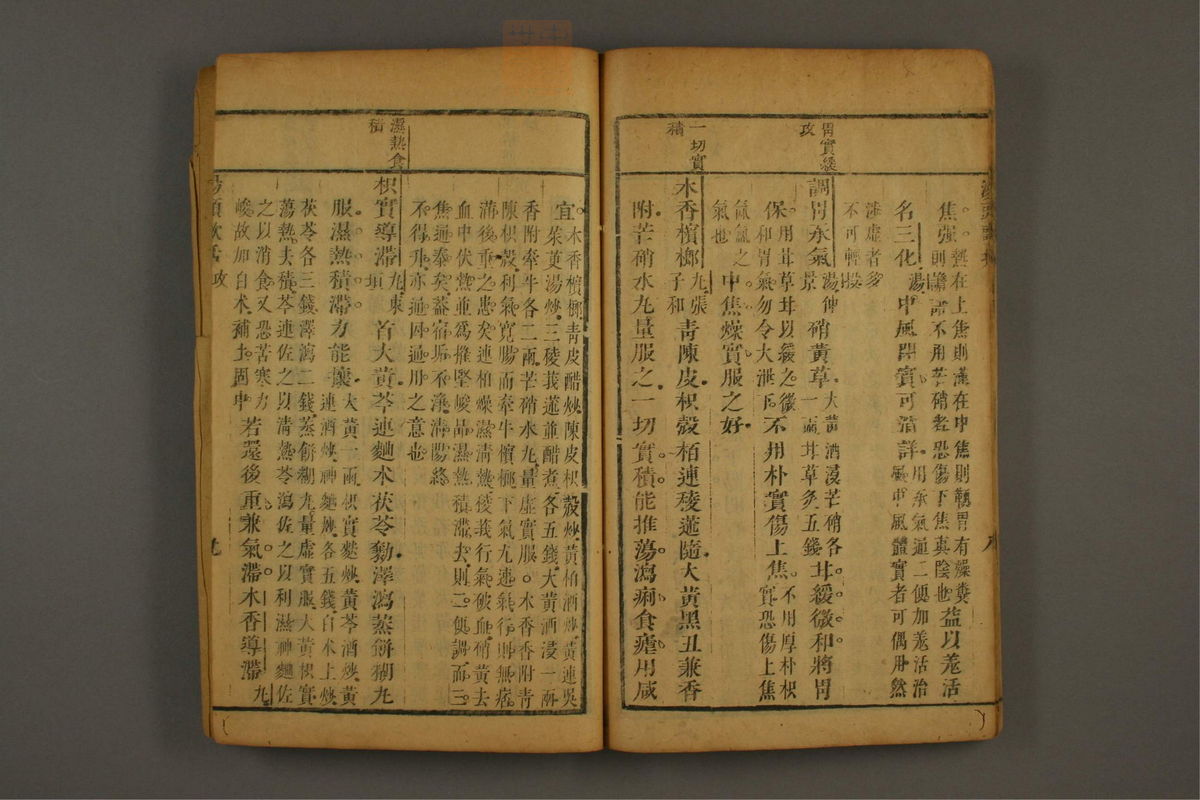 胃實緩
攻
一切實
積
焦強。熱在上焦則滿在中焦則鞕胃有燥糞
則譫語不用芒硝者恐傷下焦真陰也益以羌活
名三化。湯中風閉實可消詳。用承氣通二便加羌活治
風中風體實者可偶用然
涉虛者多
不可輕投
調胃承氣湯仲
景硝黃草。大黃酒浸芒硝各
一兩甘草炙五錢甘緩微和將胃
保。用甘草甘以緩之微
和胃氣勿令大泄下不用朴實傷上焦。不用厚朴枳
實恐傷上焦
氤氳之
氣也中焦燥實服之好。
木香檳榔丸張
子和青陳皮。枳殼栢連稜莪隨。大黃黑丑兼香
附。芒硝水丸量服之。一切實積能推蕩。瀉痢食瘧用咸
濕熱食
積
宜。木香檳榔青皮醋炒陳皮枳殼炒黃栢酒炒黃連吳
茱萸湯炒三稜莪蒁並醋煮各五錢大黃酒浸一兩
香附牽牛各二兩芒硝水丸量虛實服。木香香附青
陳枳殼利氣寬腸而牽牛檳榔下氣尤速氣行則無痞
滿後重之患矣連栢燥濕清熱稜莪行氣破血硝黃去
血中伏熱並為推堅峻品濕熱積滯去則二便調而三
焦通泰矣蓋宿垢不淨清陽終
不得升亦通因通用之意也
枳實導滯丸東
垣首大黃。芩連麯朮茯苓勷。澤瀉蒸餅糊丸
服。濕熱積滯力能攘。大黃一兩枳實麩炒黃芩酒炒黃
連酒炒神麯炒各五錢白朮土炒
茯苓各三錢澤瀉二錢蒸餅糊丸量虛實服大黃枳實
蕩熱去積芩連佐之以清熱苓瀉佐之以利濕神麯佐
之以消食又恐苦寒力
峻故加白朮補土固中若還後重兼氣滯。木香導滯丸
湯頭歌訣 攻 九